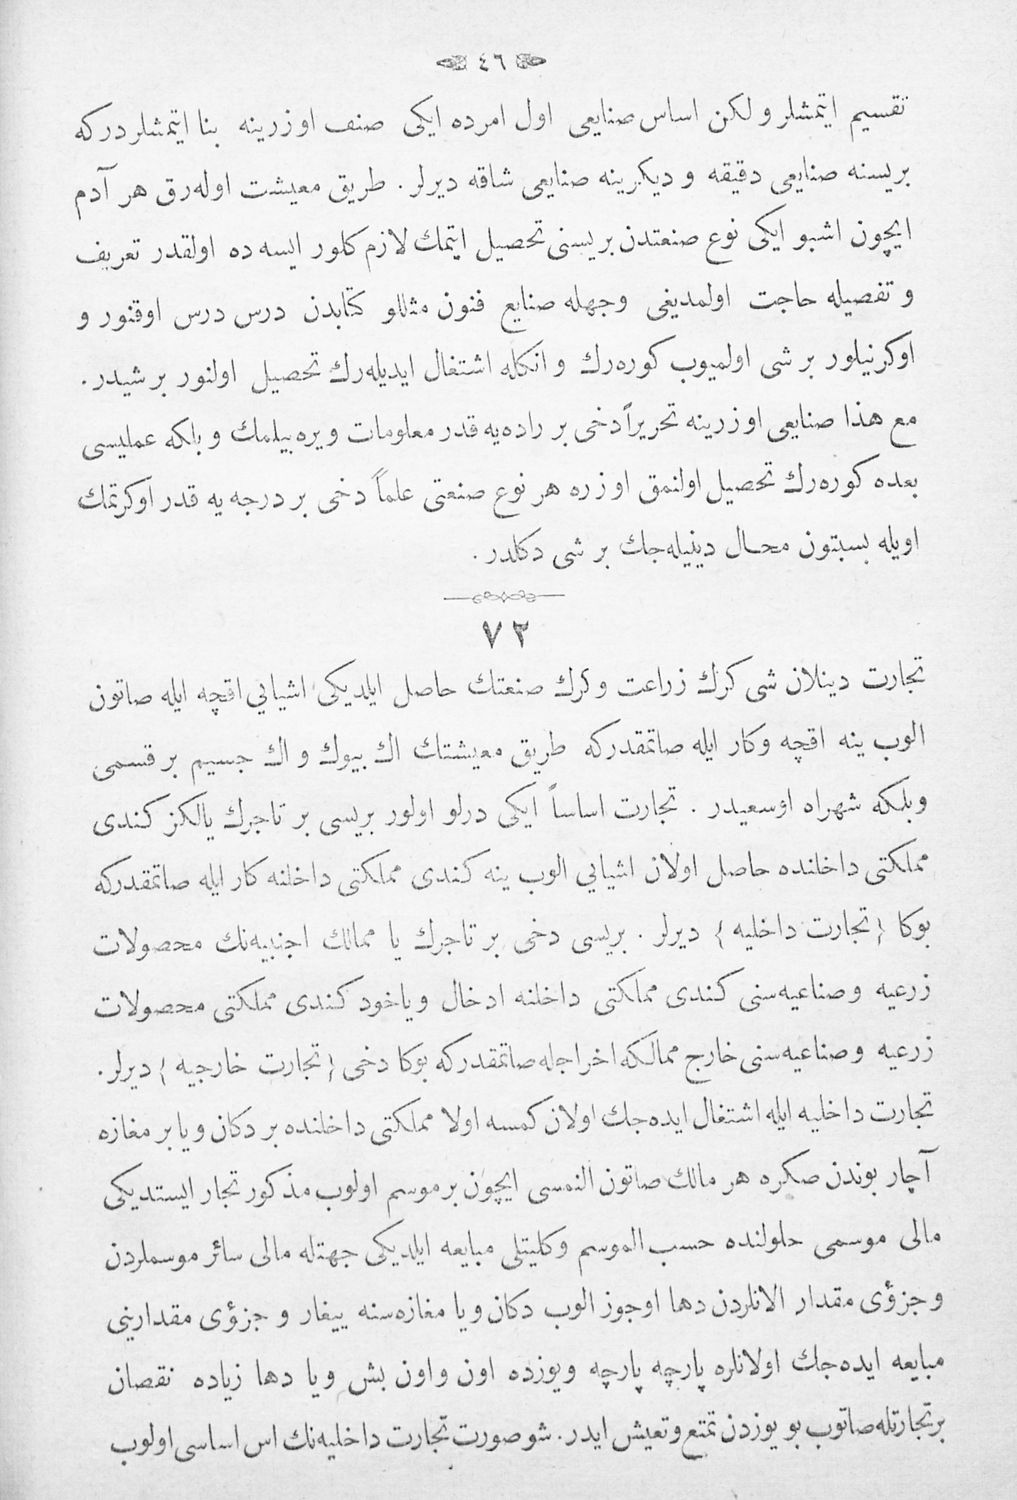 ٤٦
تقسيم ايتمشلر و لكن اساس صنايعى اول امرده ايكى صنف اوزرينه بنا ايتمشلردركه
بريسنه صنايعى دقيقه و ديكرينه صنايعى شاقه ديرلر . طريق معيشت اوله‌رق هر آدم
ايچون اشبو ايكى نوع صنعتدن بريسنى تحصيل ايتمك لازم كلور ايسه ده اولقدر تعريف
و تفصيله حاجت اولمديغى وجهله صنايع فنون مثللو كتابدن درس درس اوقنور و
اوكرنيلور بر شى اولميوب كوره‌رك و انكله اشتغال ايديله‌رك تحصيل اولنور بر شيدر.
مع هذا صنايعى اوزرينه تحريراً دخى بر راده‌يه قدر معلومات ويره بيلمك و بلكه عمليسى
بعده كوره‌رك تحصيل اولنمق اوزره هر نوع صنعتى علماً دخى بر درجه يه قدر اوكرتمك
اويله بسبتون محال دينيله‌جك بر شى دكلدر .
٧٢
تجارت دينلان شى كرك زراعت و كرك صنعتك حاصل ايلديكى اشيايى اقچه ايله صاتون
الوب ينه اقچه و كار ايله صاتمقدركه طريق معيشتك اك بيوك و اك جسيم بر قسمى
وبلكه شهراه اوسعيدر . تجارت اساساً ايكى درلو اولور بريسى بر تاجرك يالكز كندى
مملكتى داخلنده حاصل اولان اشيايى الوب ينه كندى مملكتى داخلنه كار ايله صاتمقدركه
بوكا {تجارت داخليه} ديرلر . بريسى دخى بر تاجرك يا ممالك اجنبيه‌نك محصولات
زرعيه وصناعيه‌سنى كندى مملكتى داخلنه ادخال وياخود كندى مملكتى محصولات
زرعيه وصناعيه‌سنى خارج ممالكه اخراجله صاتمقدركه بوكا دخى {تجارت خارجيه} ديرلر.
تجارت داخليه ايله اشتغال ايده‌جك اولان كمسه اولا مملكتى داخلنده بر دكان ويا بر مغازه
آچار بوندن صكره هر مالك صاتون النمسى ايچون بر موسم اولوب مذكور تجار ايستديكى
مالى موسمى حلولنده حسب الموسم وكليتلى مبايعه ايلديكى جهتله مالى سائر موسملردن
و جزؤى مقدار الانلردن دها اوجوز الوب دكان ويا مغازه‌سنه ييغار و جزؤى مقدارينى
مبايعه ايده‌جك اولانلره پارچه پارچه ويوزده اون واون بش ويا دها زياده نقصان
بر تجارتله صاتوب بو يوزدن تمتع وتعيش ايدر. شو صورت تجارت داخليه‌نك اس اساسى اولوب